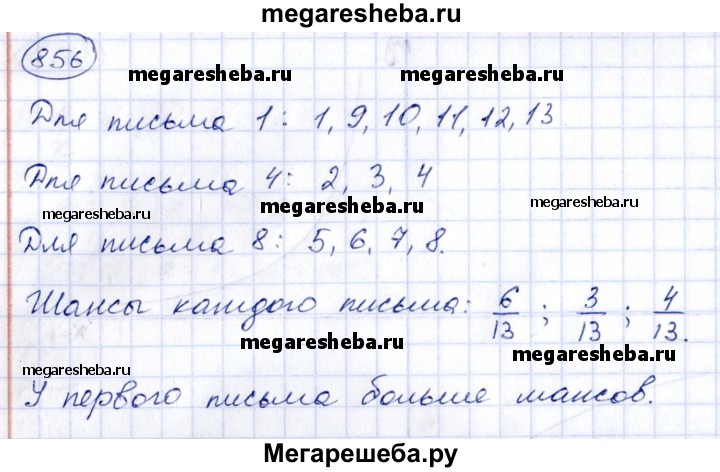 megaresheba.ru
856
megaresheba.ru megaresheba.ru
Для письма 1: 1, 9, 10, 11, 12, 13
Для письма 4: 2, 3, 4
megaresheba.ru megaresheba.ru megaresheba.ru
Для письма 8: 5, 6, 7, 8.
Шансы каждого письма: 6/13; 3/13; 4/13.
megaresheba.ru megaresheba.ru megaresheba.ru
У первого письма больше шансов.
Мегарешеба.ру